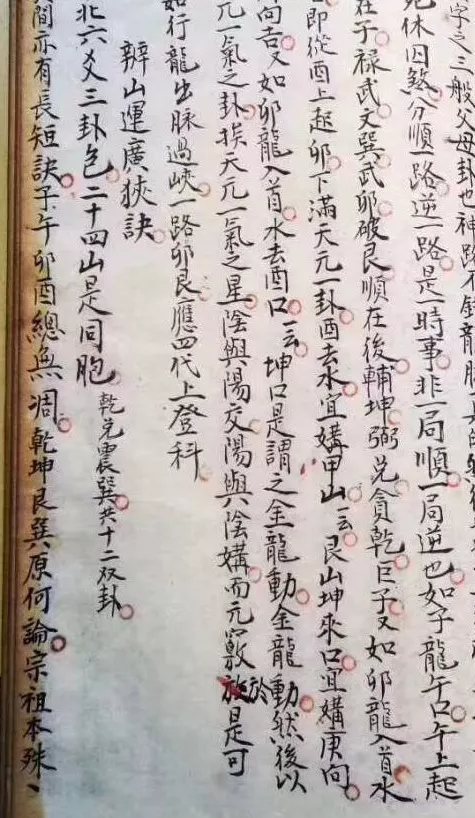 字之三般父母卦也神路不
死休囚煞分順一路逆一路是一時事非一局順一局逆也如子龍午口午上起
在子祿武文巽武卯破艮順在後輔坤弼兌貪乾巨子又如卯龍入首水
即從酉上起卯下滿天元一卦酉去水宜媾甲山云艮山坤來口宜媾庚向
向去又如卯龍入首水去酉口云坤口是謂之金龍動金龍動然後以
元一氣之卦挨天元一氣之星陰與陽交陽與陰媾而元竅於是可
如行龍出脈過峽一路卯艮應四代上登科
辨山運廣狹訣
北六爻三卦包二十四山是同胞乾兌震巽共十二双卦
間亦有長短訣子午卯酉總無凋乾坤艮巽原何論宗祖本殊